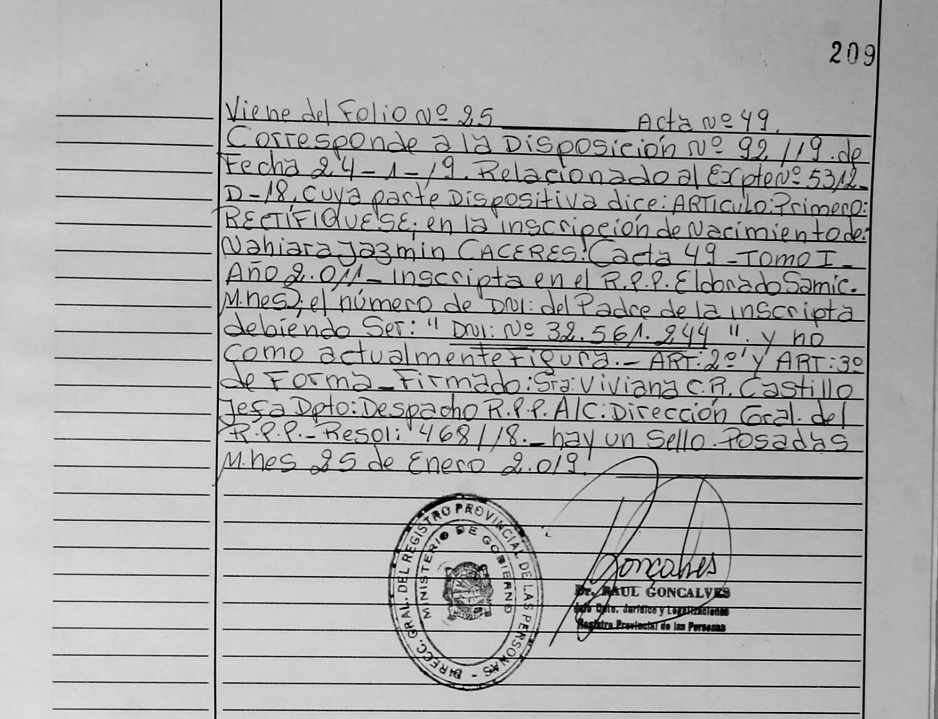 209
Viene del Folio Nº 25 Acta Nº 49.
Corresponde a la Disposición Nº 92/19. de
Fecha 24-1-19. Relacionado al Expte Nº 5312-
D-18, cuya parte Dispositiva dice: ARTICULO: Primero:
RECTIFIQUESE; en la inscripción de Nacimiento de:
Nahiara Jazmin CACERES: (acta 49 - TOMO I -
Año 2.011- inscripta en el R.P.P. Eldorado Samic.
M.nes); el número de DNI: del Padre de la inscripta
debiendo Ser: "DNI: Nº 32.561.244". y no
como actualmente Figura.- ART: 2º Y ART: 3º
de Forma - Firmado: Sra: Viviana C.R. Castillo
Jefa Dpto: Despacho R.P.P. A/C: Dirección Gral. del
R.P.P.- Resol: 468/18.- hay un Sello. Posadas
M.nes 25 de Enero 2.019.
DIRECC. GRAL. DEL REGISTRO PROVINCIAL DE LAS PERSONAS -
MINISTERIO DE GOBIERNO
Goncalves
Dr. RAUL GONCALVES
Jefe Dpto. Jurídico y Legalizaciones
Registro Provincial de las Personas